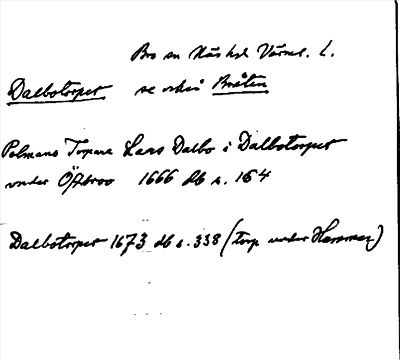 Bro sn Näs hd Värml. l.
Dalbotorpet se också Bråten
Polmans Torpare Lars Dalbo i Dalbotorpet
under Öfvbroo 1666 db s. 164
Dalbotorpet 1673 db s. 338 (torp under Hammar)